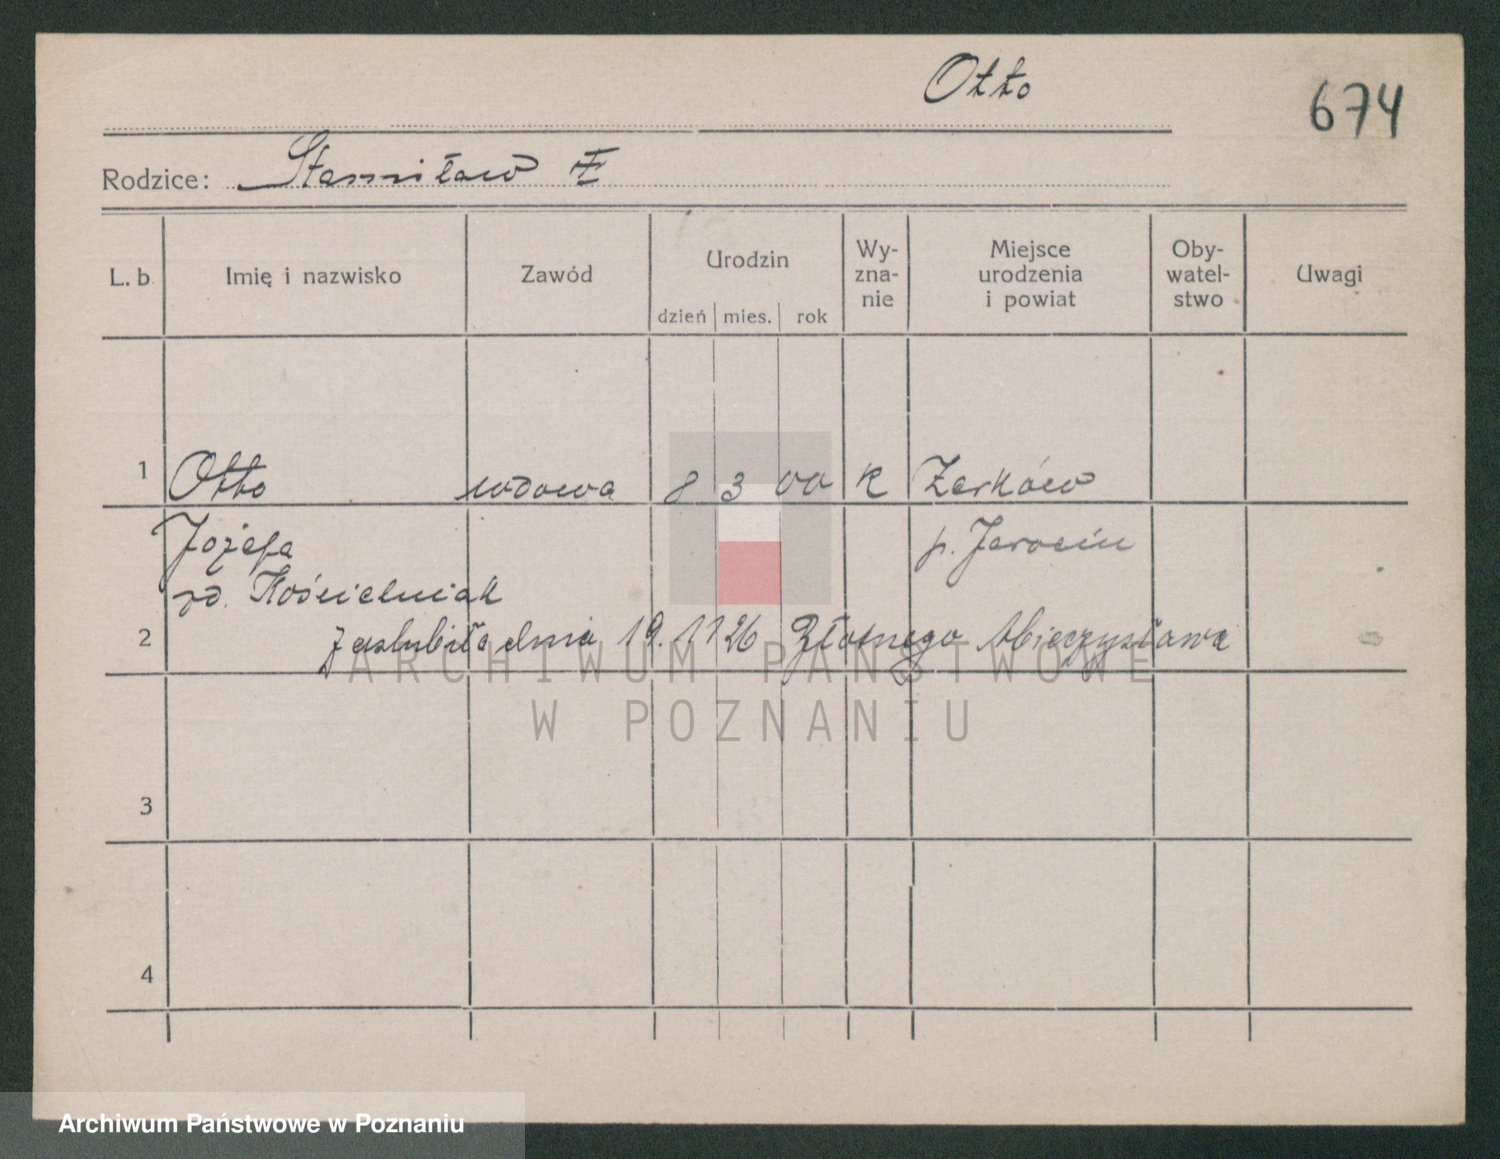 Otto
674
Rodzice: Stanisław
L. b. Imię i nazwisko Zawód Urodzin dzień mies. rok Wy-zna-nie Miejsce urodzenia i powiat Oby-watel-stwo Uwagi
1 Otto wdowa 8 3 00 K Żerków
Józefa p. Jarocin
zd. Kościelniak
2 zaslubiła dnia 19.11 26 Mieczysława
3
4
ARCHIWUM PAŃSTWOWE
W POZNANIU
Archiwum Państwowe w Poznaniu